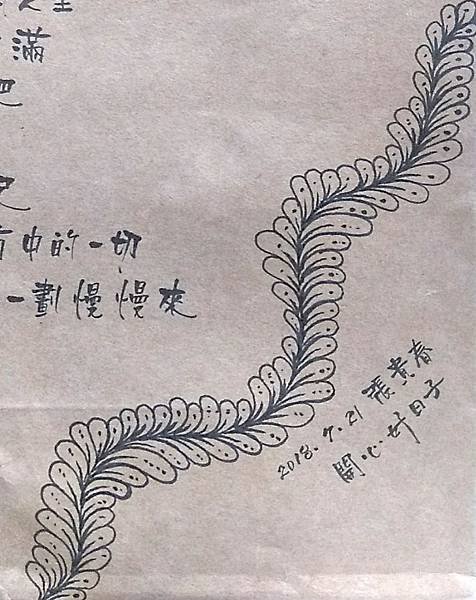 滿
中的一切
一劃慢慢來
2018.7.21 張貴春
開心好日子